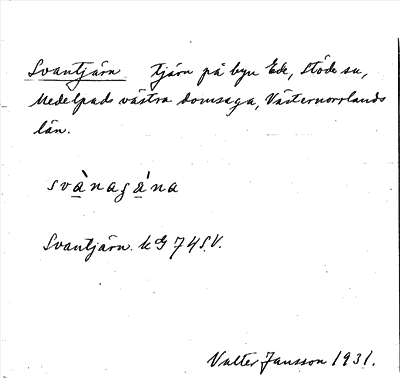 Svantjärn tjärn på byn Ede, Stöde sn,
Medelpads västra domsaga, Västernorrlands
län.
svànagána
Svantjärn. k G 74 S.V.
Valter Jansson 1931.